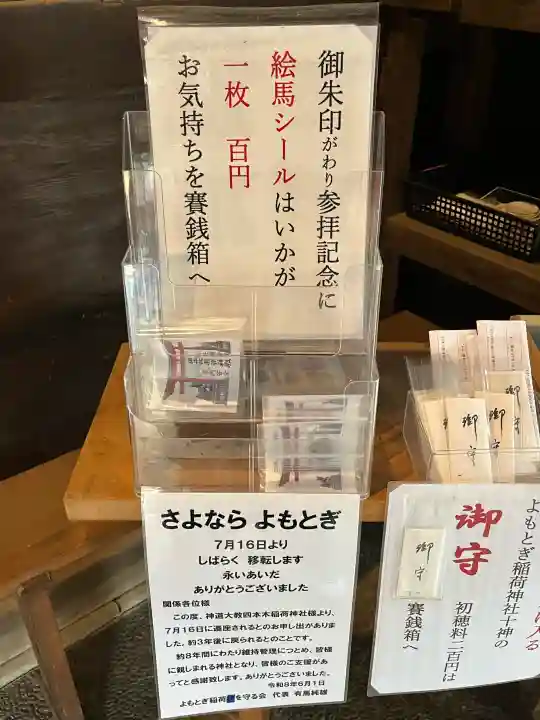 御朱印がわり参拝記念に
絵馬シールはいかが
一枚 百円
お気持ちを賽銭箱へ
さよなら よもとぎ
7月16日より
しばらく 移転します
永いあいだ
ありがとうございました
関係各位様
この度、神道大教四本木稲荷神社様より、
7月16日に遷座されるとのお申し出がありま
した。約3年後に戻られるとのことです。
約8年間にわたり維持管理につとめ、皆様
に親しまれる神社となり、皆様のご支援があ
ってと感謝致します。ありがとうございました。
令和8年6月1日
よもとぎ稲荷を守る会 代表 有馬純雄
御守
御守
御守
よもとぎ稲荷神社十神の
御守
初穂料二百円は
賽銭箱へ
御守